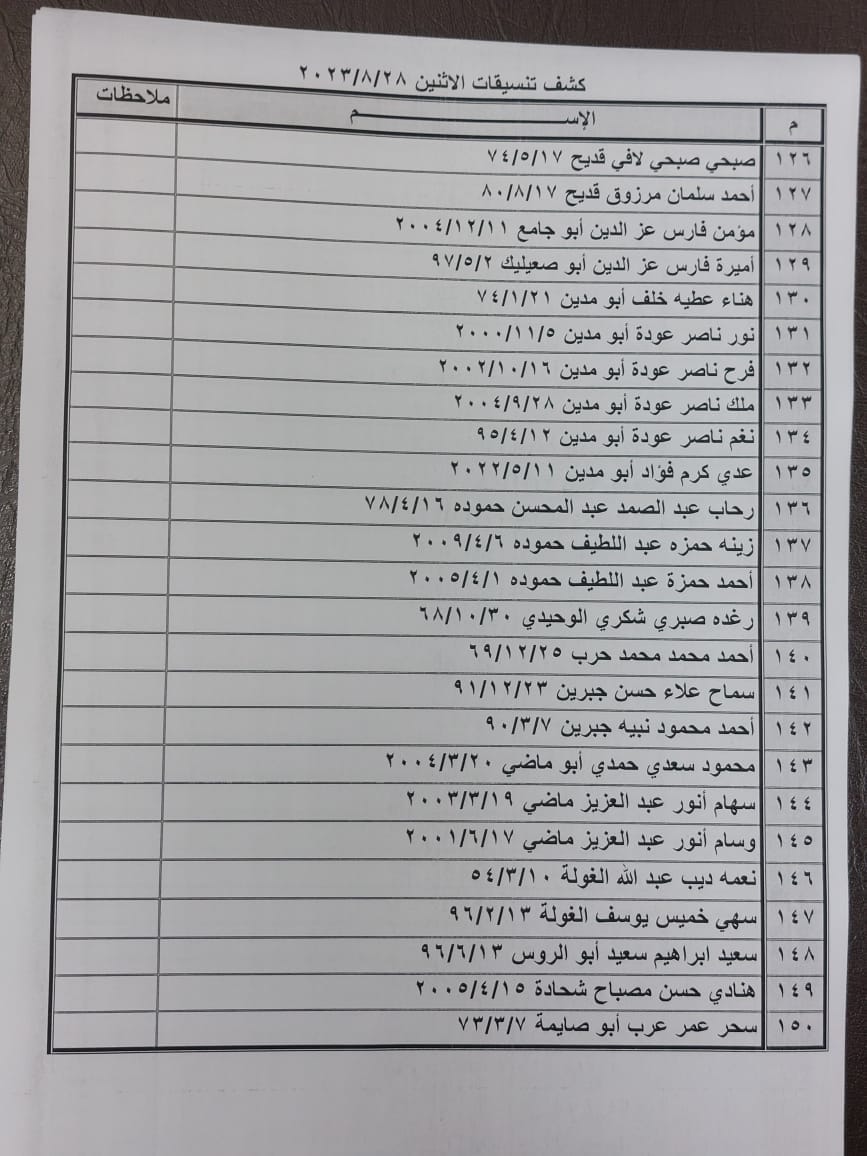 كشف تنسيقات الاثنين ٢٠٢٣/٨/٢٨
م الإســـم ملاحظات
١٢٦ صبحي صبحي لافي قديح ٧٤/٥/١٧
١٢٧ أحمد سلمان مرزوق قديح ٨٠/٨/١٧
١٢٨ مؤمن فارس عز الدين أبو جامع ٢٠٠٤/١٢/١١
١٢٩ أميرة فارس عز الدين أبو صعيليك ٩٧/٥/٢
١٣٠ هناء عطيه خلف أبو مدين ٧٤/١/٢١
١٣١ نور ناصر عودة أبو مدين ٢٠٠٠/١١/٥
١٣٢ فرح ناصر عودة أبو مدين ٢٠٠٢/١٠/١٦
١٣٣ ملك ناصر عودة أبو مدين ٢٠٠٤/٩/٢٨
١٣٤ نغم ناصر عودة أبو مدين ٩٥/٤/١٢
١٣٥ عدي كرم فؤاد أبو مدين ٢٠٢٢/٥/١١
١٣٦ رحاب عبد الصمد عبد المحسن حموده ٧٨/٤/١٦
١٣٧ زينه حمزه عبد اللطيف حموده ٢٠٠٩/٤/٦
١٣٨ أحمد حمزة عبد اللطيف حموده ٢٠٠٥/٤/١
١٣٩ رغده صبري شكري الوحيدي ٦٨/١٠/٣٠
١٤٠ أحمد محمد محمد حرب ٦٩/١٢/٢٥
١٤١ سماح علاء حسن جبرين ٩١/١٢/٢٣
١٤٢ أحمد محمود نبيه جبرين ٩٠/٣/٧
١٤٣ محمود سعدي حمدي أبو ماضي ٢٠٠٤/٣/٢٠
١٤٤ سهام أنور عبد العزيز ماضي ٢٠٠٣/٣/١٩
١٤٥ وسام أنور عبد العزيز ماضي ٢٠٠١/٦/١٧
١٤٦ نعمه ديب عبد الله الغولة ٥٤/٣/١٠
١٤٧ سهي خميس يوسف الغولة ٩٦/٢/١٣
١٤٨ سعيد ابراهيم سعيد أبو الروس ٩٦/٦/١٣
١٤٩ هنادي حسن مصباح شحادة ٢٠٠٥/٤/١٥
١٥٠ سحر عمر عرب أبو صايمة ٧٣/٣/٧